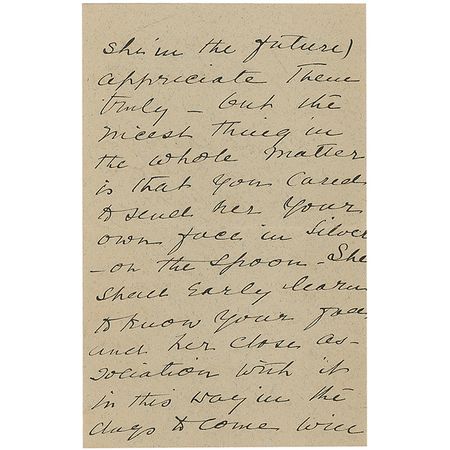 she in the future)
appriciate them
truly - but the
nicest thing in
the whole matter
is that you cared
to send her your
own face in silver
- on the spoon - She
shall early learn
to know your face
and her close as-
sociation with it
in this way in the
days to come will